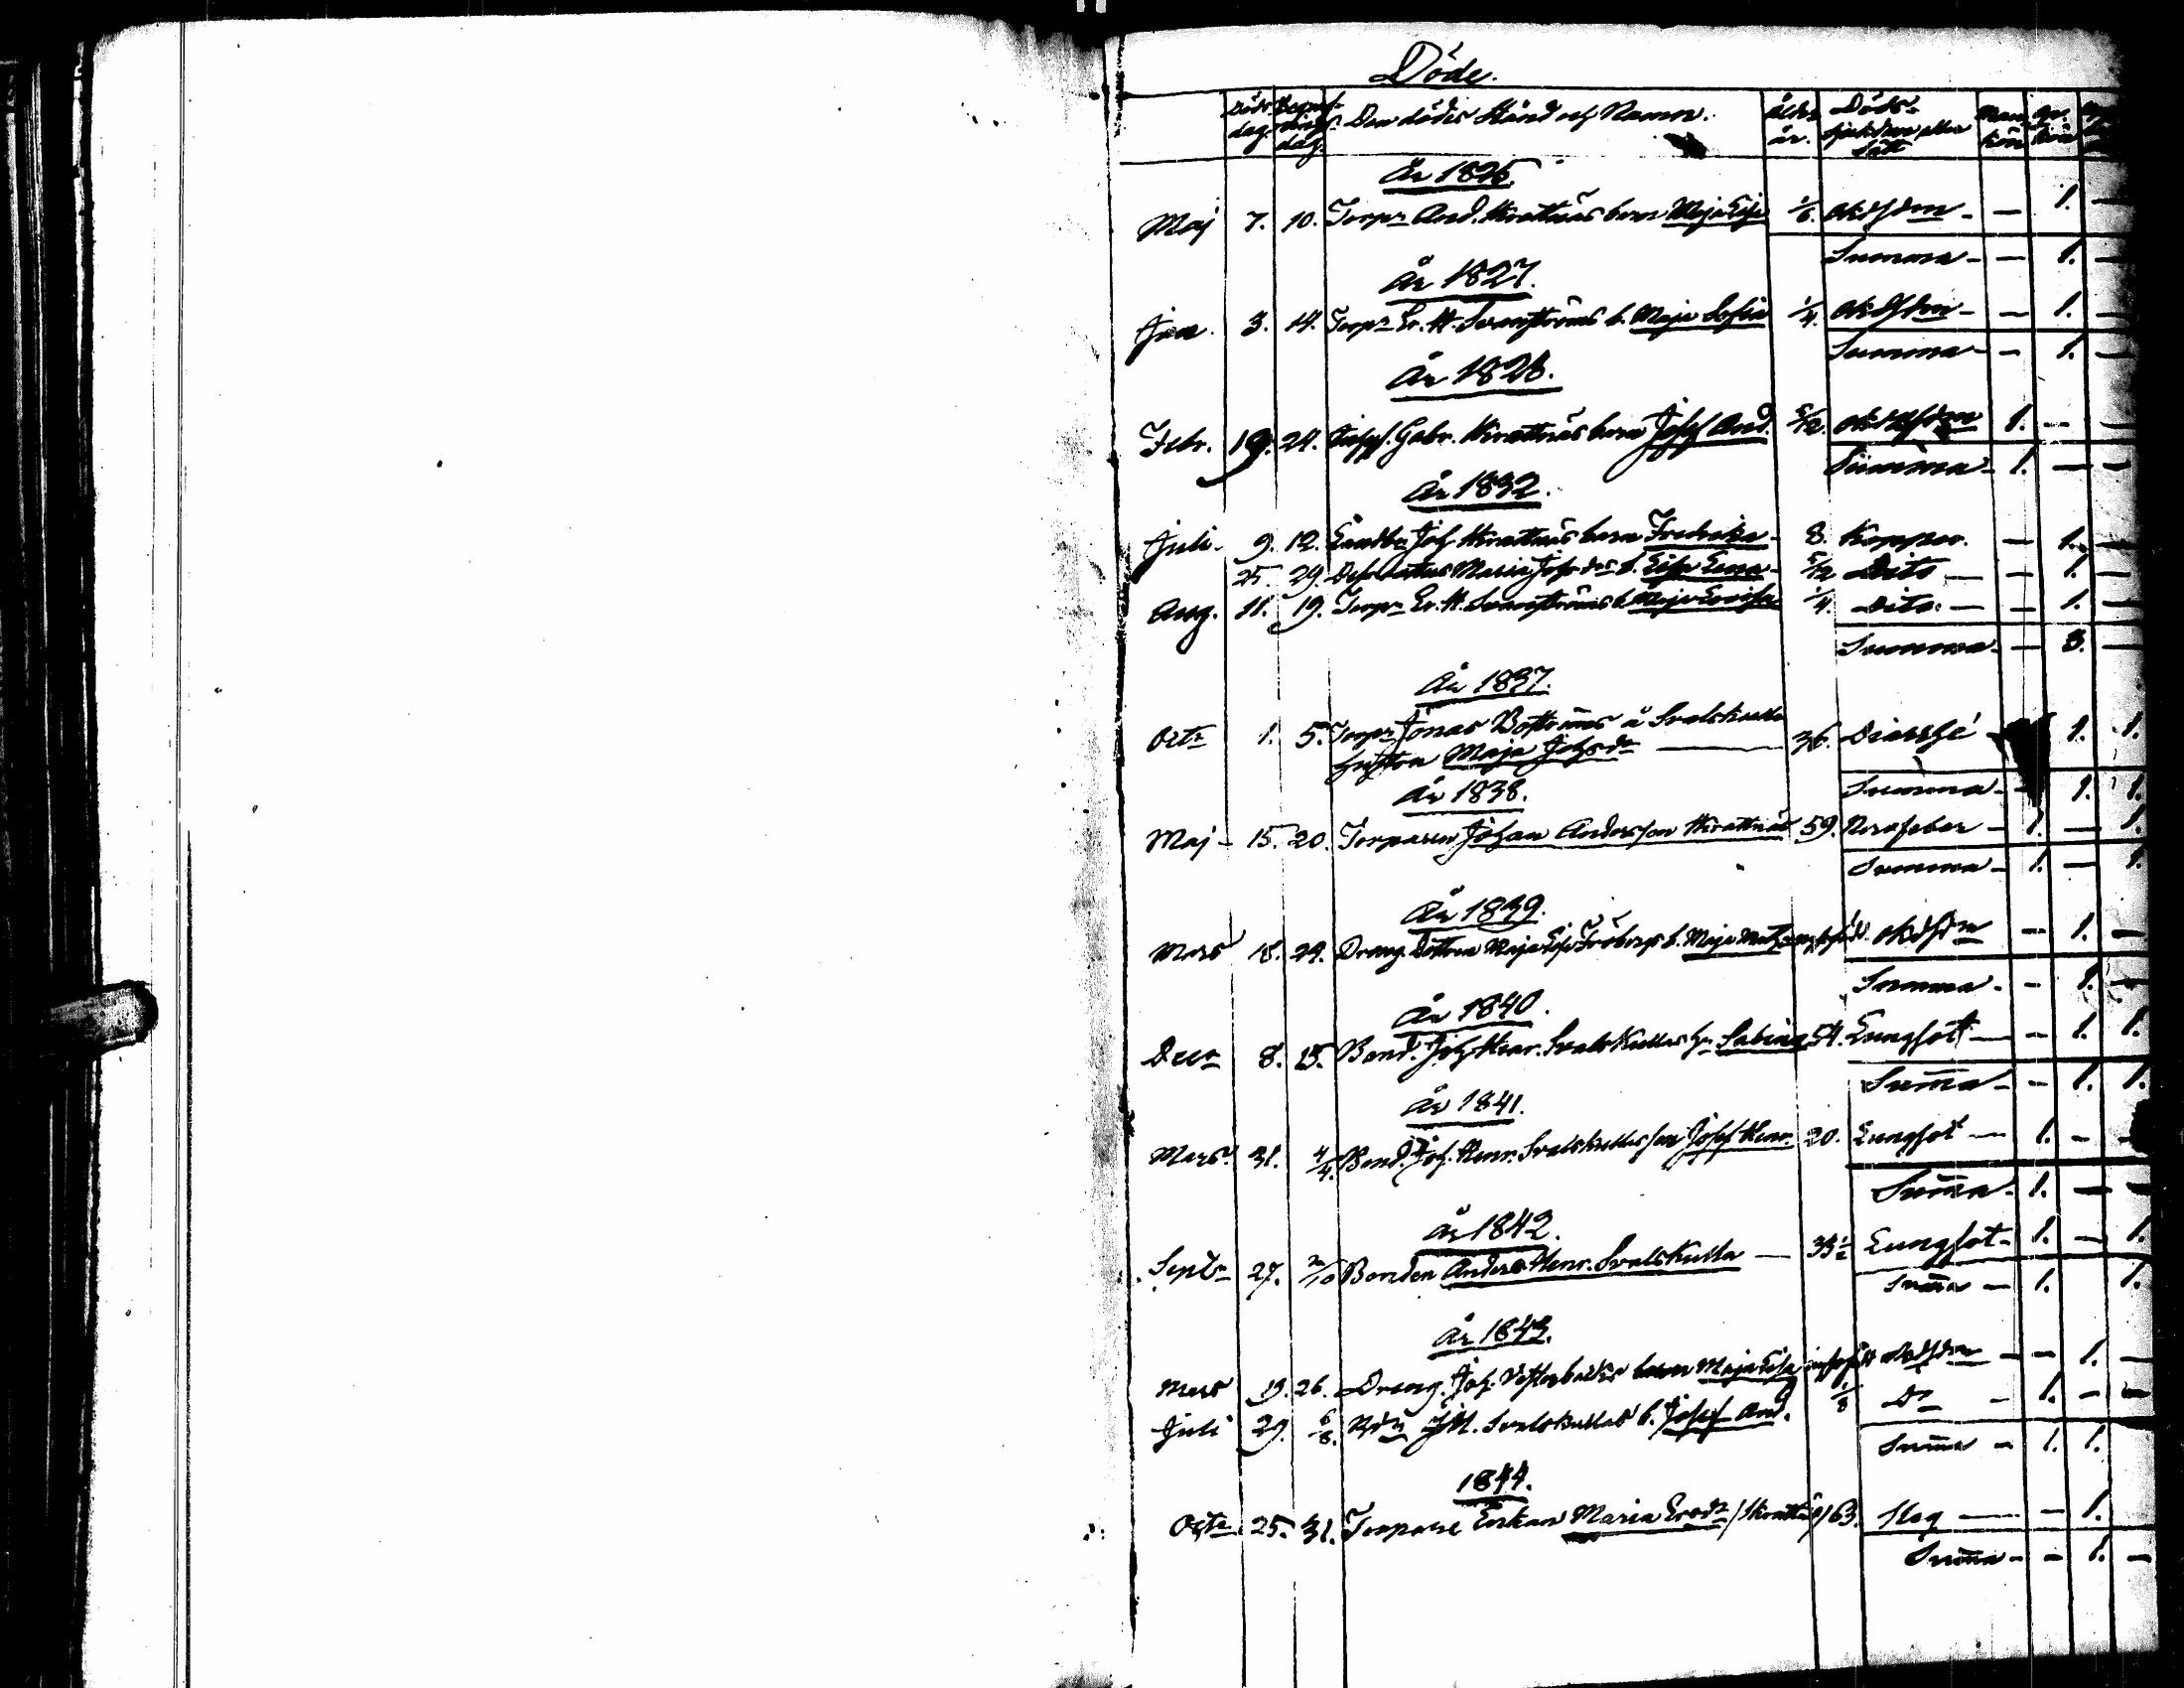 Döde.
Döds dag. Begrafnings dag. Den dödes Stånd och Namn. Ålder år. Döds sjukdom eller sätt Man kön Qv. kön
År 1826.
Maj 7. 10. Torpr And. Skrattnäs barn Maja Lisa 1/6. okd sdm - — 1. —
Summa - — 1. —
År 1827.
Jan. 3. 14. Torpr Er. H. Svanströms b. Maja Sofia 1/4. okd sdm - — 1. —
Summa - — 1. —
År 1828.
Febr. 19. 24. Gabr. Skrattnäs barn Josef And. 5/12. okd sdm 1. — —
Summa - 1. — —
År 1832.
Juli - 9. 12. Landbn Joh Skrattnäs barn Fredrika - 8. Koppor. — 1. —
25. 29. Maria Johsdr b. Lisa Lena - 5/12 Dito — — 1. —
Aug. 11. 19. Torpr Er. H. Svanströms b. Maja Lovisa 1/4. Dito. — — 1. —
Summa - — 3. —
År 1837.
Octr 1. 5. Torpr Jonas Boströms å Svalskulla
hustru Maja Johsdr — 36. Diarrhé 1. 1.
Summa - 1. 1.
År 1838.
Maj - 15. 20. Torparen Johan Andersson Skrattnäs 59. Nervfeber — 1. — 1.
Summa - 1. — 1.
År 1839.
Mars 18. 29. Dräng. Dottren Maja Lisa Fröbergs b. Maja okd sdm — 1. —
Summa - — 1. —
År 1840.
Decr 8. 13. Bond. Joh Henr. Svalskullas hu Sabina 54. Lungsot — — 1. 1.
Summa - — 1. 1.
År 1841.
Mars 31. 4/4. Bond. Joh. Henr. Svalskullas son Josef Henr. 20. Lungsot — 1. — —
Summa - 1. — —
År 1842.
Septr 27. 2/10 Bonden Anders Henr. Svalskulla — 33 1/2 Lungsot - 1. — 1.
Summa — 1. 1.
År 1843.
Mars 19. 26. Dräng. Joh. Vesterbacks barn Maja Lisa okd sdm — — 1. —
Juli 29. 6/8. Svalskullas b. Josef And. 1/8 Do — 1. — —
Summa — 1. 1.
1844.
Octr 25. 31. Torpare Enkan Maria Ersdr /Skrattnäs/ 63. Slag — — 1.
Summa - — 1. —